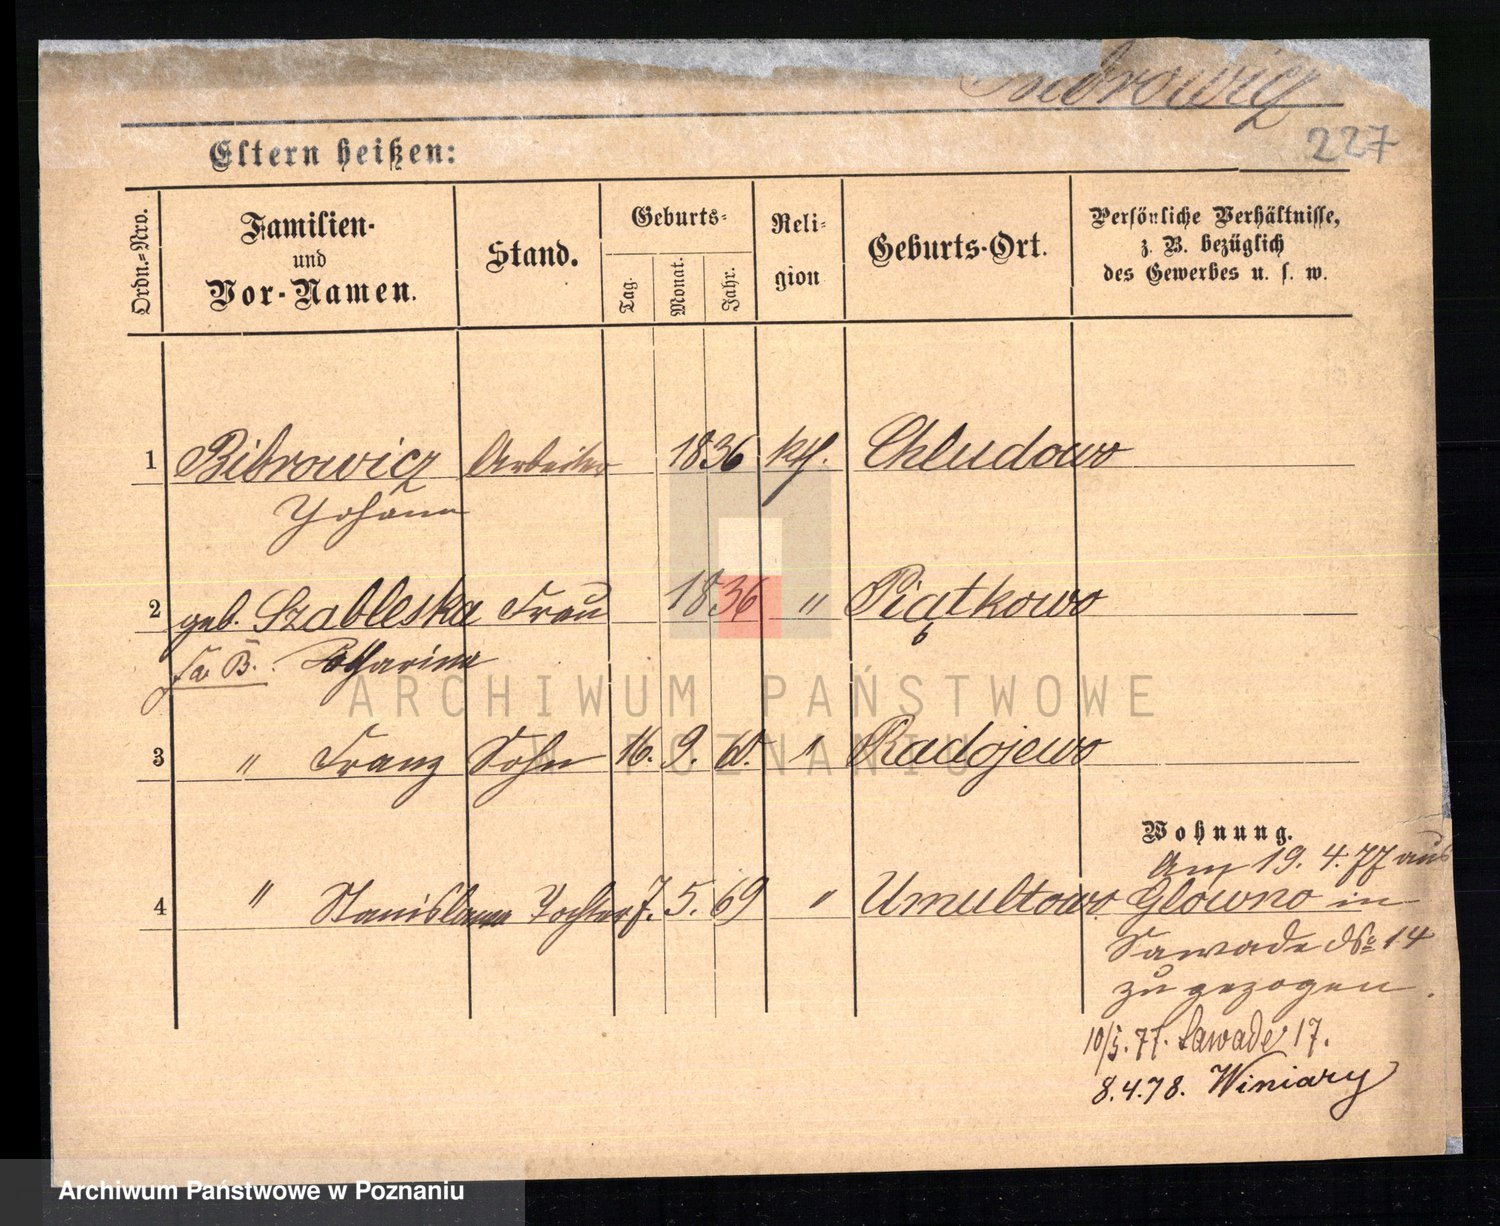 Bibrowicz
227
Eltern heißen:
Ordn.-Nro.
Familien-
und
Vor-Namen.
Stand.
Geburts-
Tag.
Monat.
Jahr.
Reli-
gion
Geburts-Ort.
Persönliche Verhältnisse,
z. B. bezüglich
des Gewerbes u. s. w.
1 Bibrowicz Arbeiter 1836 kth. Chludowo
Johann
2 geb. Szableska Frau 1836 " Piątkowo
Catharina
3 " Franz Sohn 16. 9. 60. " Radojewo
Wohnung.
Am 19. 4. 77 aus
4 " Stanislawa Tochter 7. 5. 69 " Umultowo Glówno in
Sawade No 14
zu gezogen.
10/5. 77. Sawade 17.
8.4.78. Winiary
ARCHIWUM PAŃSTWOWE
W POZNANIU
Archiwum Państwowe w Poznaniu